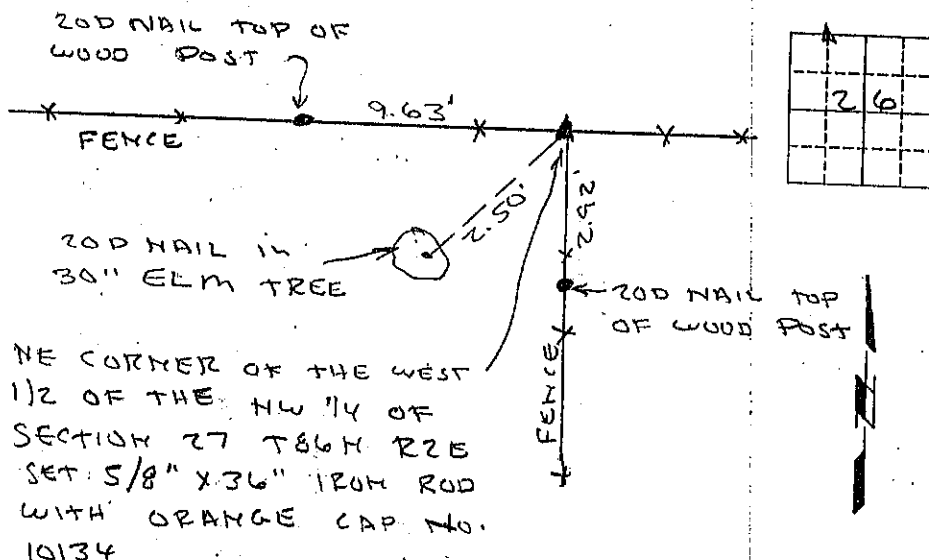 20D NAIL TOP OF
WOOD POST
9.63'
FENCE
26
2.50'
2.92'
20D NAIL in
30" ELM TREE
20D NAIL TOP
OF WOOD POST
FENCE
N
NE CORNER OF THE WEST
1/2 OF THE NW 1/4 OF
SECTION 27 T86N R2E
SET 5/8" X 36" IRON ROD
WITH ORANGE CAP NO.
10134